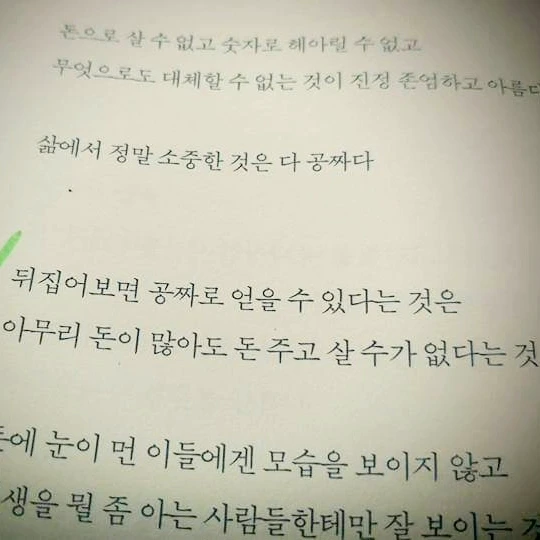 돈으로 살 수 없고 숫자로 헤아릴 수 없고
무엇으로도 대체할 수 없는 것이 진정 존엄하고 아름다
삶에서 정말 소중한 것은 다 공짜다
뒤집어보면 공짜로 얻을 수 있다는 것은
아무리 돈이 많아도 돈 주고 살 수가 없다는 것
돈에 눈이 먼 이들에겐 모습을 보이지 않고
생을 뭘 좀 아는 사람들한테만 잘 보이는